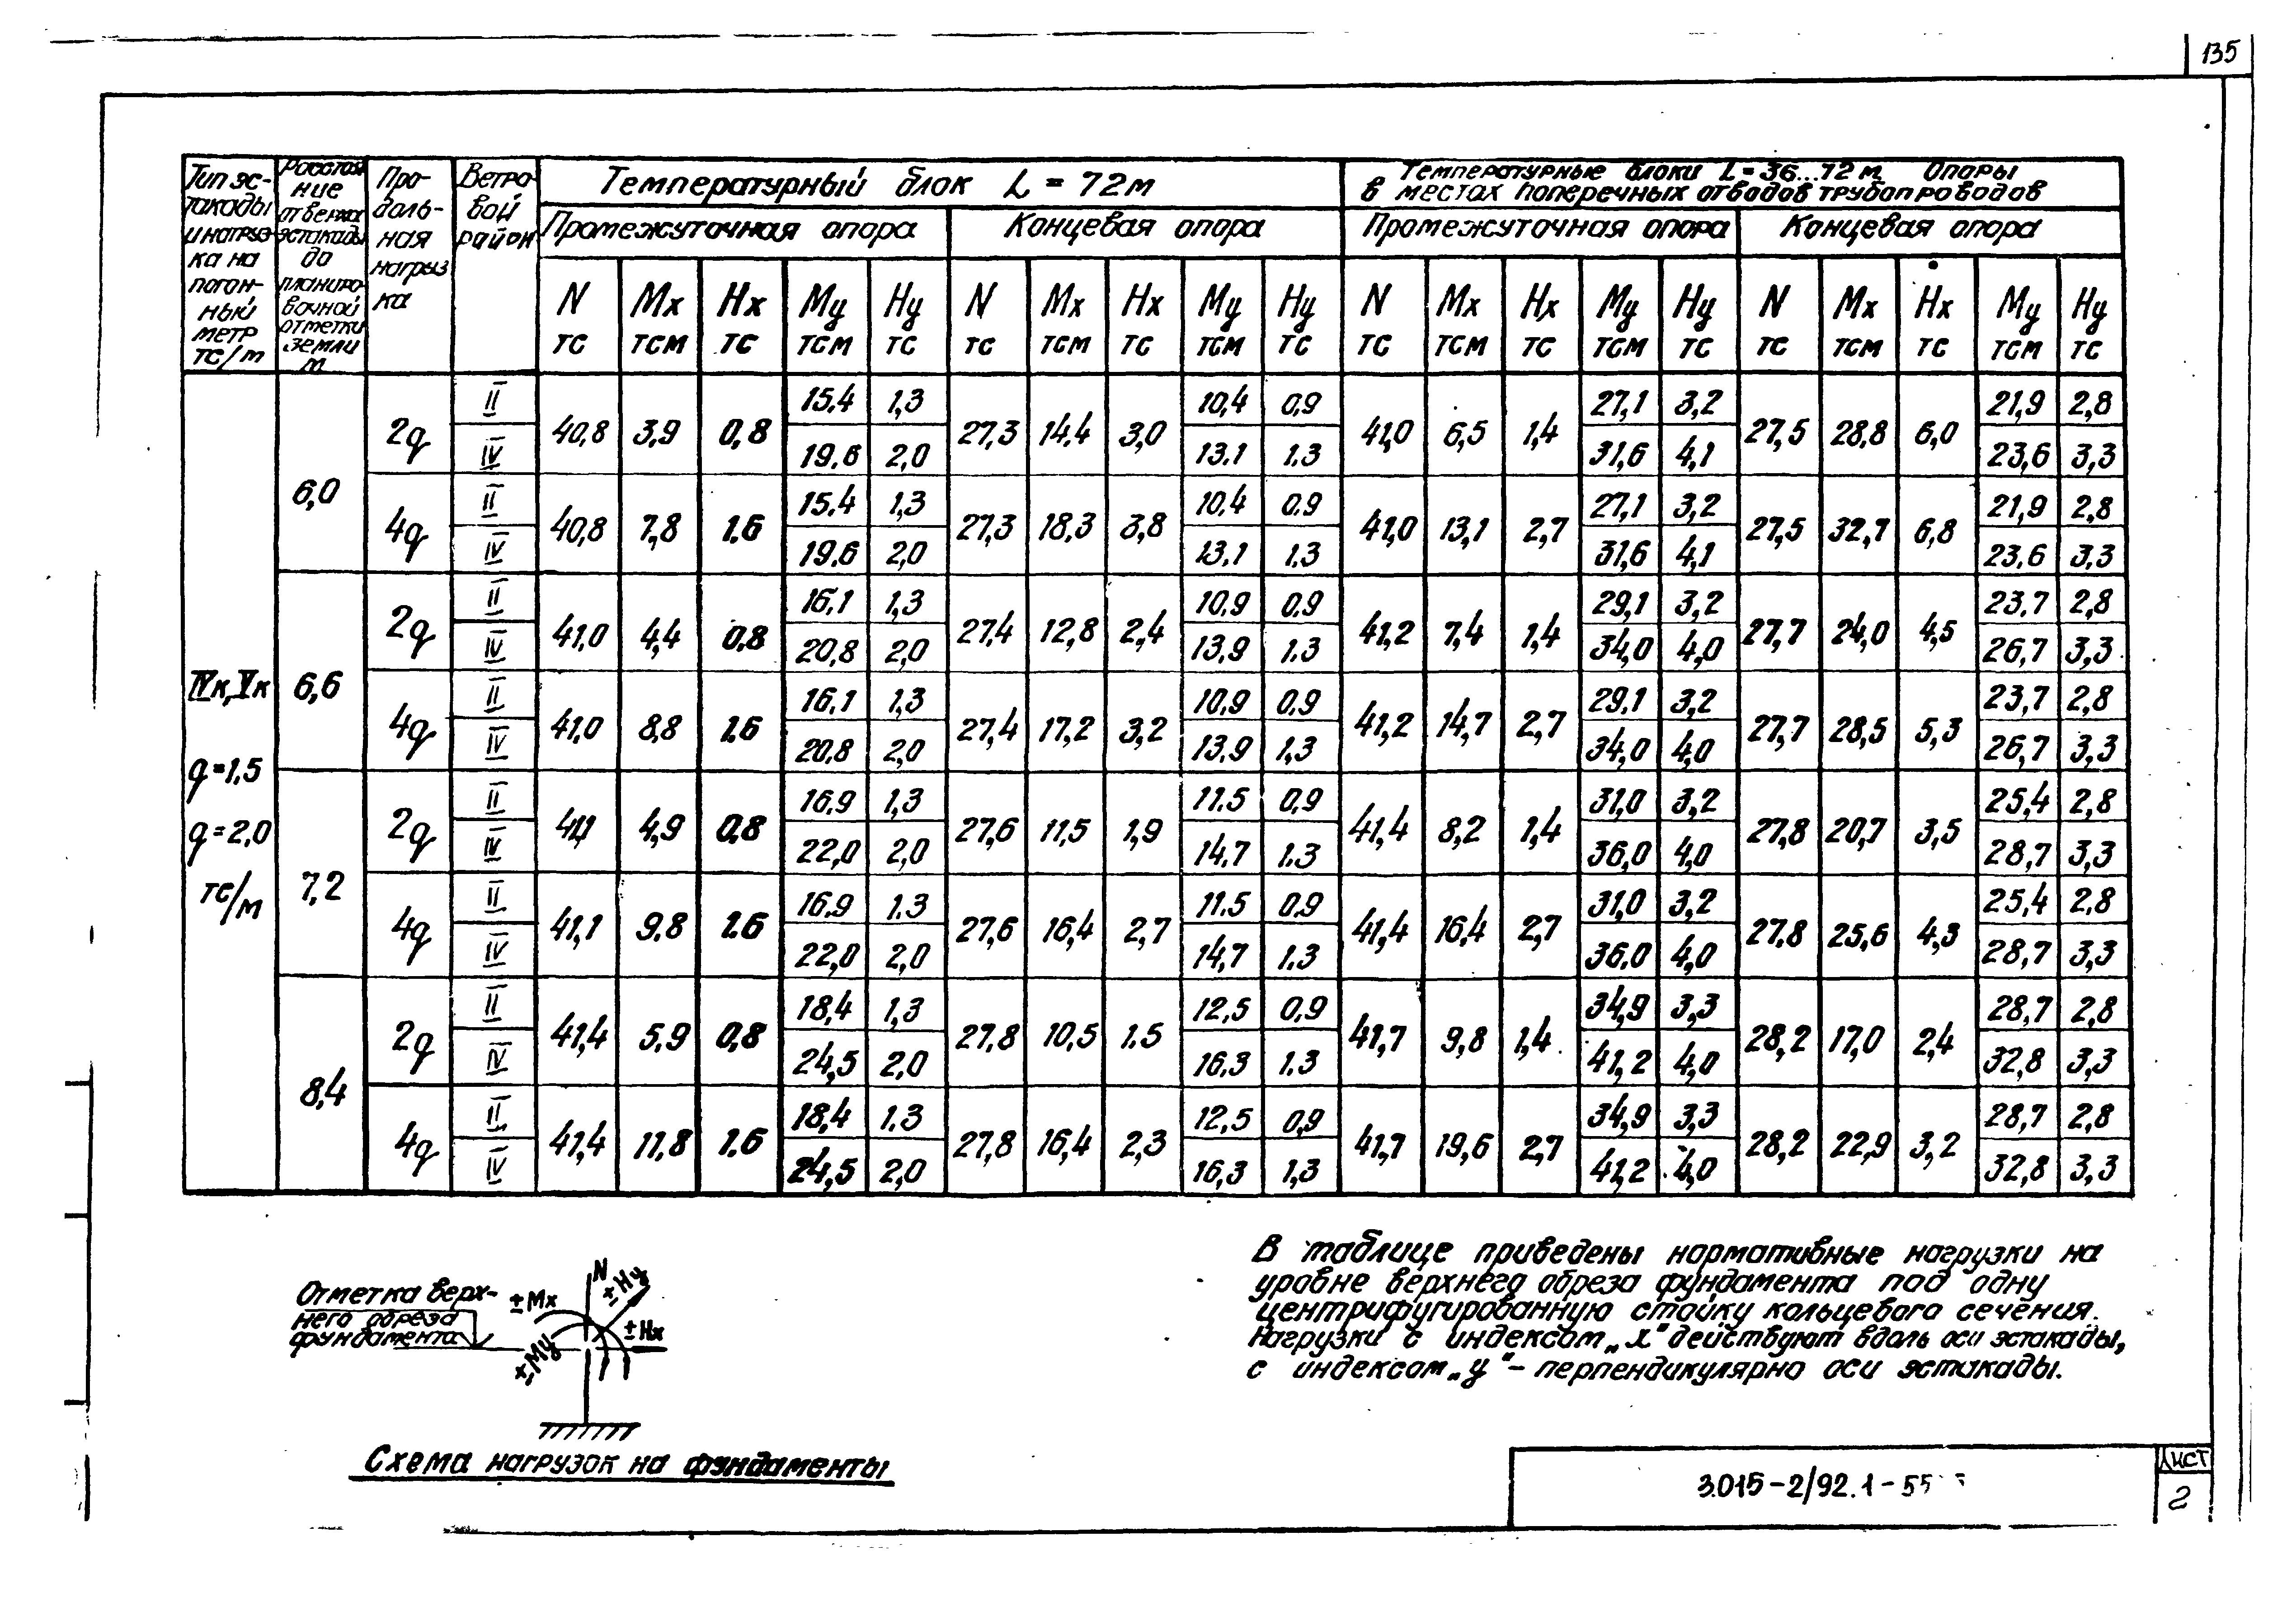 135
Тип эс-
такады
и нагруз-
ка на
погон-
ный
метр
тс/м
Расстоя
ние
от верха
эстакады
до
планиро-
вочной
отметки
земли
м
Про-
доль-
ная
нагруз
ка
Ветро-
вой
район
Температурный блок L = 72м
Температурные блоки L = 36...72 м Опоры
в местах поперечных отводов трубопроводов
Промежуточная опора Концевая опора Промежуточная опора Концевая опора
N Mx Hx My Hy N Mx Hx My Hy N Mx Hx My Hy N Mx Hx My Hy
тс тсм тс тсм тс тс тсм тс тсм тс тс тсм тс тсм тс тс тсм тс тсм тс
IVк, Vк
q=1,5
q=2,0
тс/м
6,0
2q II 15,4 1,3 10,4 0,9 27,1 3,2 21,9 2,8
40,8 3,9 0,8 27,3 14,4 3,0 41,0 6,5 1,4 27,5 28,8 6,0
IV 19.6 2,0 13.1 1.3 31,6 4,1 23,6 3,3
4q II 15.4 1,3 10,4 0.9 27,1 3,2 21,9 2,8
40,8 7,8 1.6 27,3 18.3 3,8 41,0 13,1 2,7 27,5 32,7 6,8
IV 19.6 2,0 13,1 1.3 31,6 4,1 23,6 3,3
6,6
2q II 16,1 1,3 10,9 0.9 29,1 3,2 23,7 2,8
41,0 4,4 0,8 27,4 12,8 2,4 41,2 7,4 1,4 27,7 24,0 4,5
IV 20,8 2,0 13,9 1.3 34,0 4,0 26,7 3,3
4q II 16,1 1,3 10,9 0,9 29,1 3,2 23,7 2,8
41,0 8,8 1.6 27,4 17,2 3,2 41,2 14,7 2,7 27,7 28,5 5,3
IV 20,8 2,0 13,9 1,3 34,0 4,0 26,7 3,3
7,2
2q II 16,9 1,3 11.5 0,9 31,0 3,2 25,4 2,8
41,1 4,9 0,8 27,6 11,5 1,9 41,4 8,2 1,4 27,8 20,7 3,5
IV 22,0 2,0 14.7 1.3 36,0 4,0 28,7 3,3
4q II 16.9 1.3 11.5 0,9 31,0 3,2 25,4 2,8
41,1 9.8 1.6 27,6 16,4 2,7 41,4 16,4 2,7 27.8 25,6 4,3
IV 22,0 2,0 14,7 1.3 36,0 4,0 28,7 3,3
8,4
2q II 18,4 1,3 12,5 0,9 34,9 3,3 28,7 2,8
41,4 5,9 0,8 27,8 10,5 1.5 41,7 9,8 1,4 28,2 17,0 2,4
IV 24,5 2,0 16,3 1.3 41,2 4,0 32,8 3,3
4q II 18,4 1.3 12,5 0,9 34,9 3,3 28,7 2,8
41,4 11,8 1.6 27,8 16,4 2,3 41,7 19,6 2,7 28,2 22,9 3,2
IV 24,5 2,0 16,3 1,3 41,2 4,0 32,8 3,3
Отметка верх-
него обреза
фундамента
N
±Hy
±Mx
±Hx
±My
Схема нагрузок на фундаменты
В таблице приведены нормативные нагрузки на
уровне верхнего обреза фундамента под одну
центрифугированную стойку кольцевого сечения.
Нагрузки с индексом „X" действуют вдоль оси эстакады,
с индексом „y" - перпендикулярно оси эстакады.
3.015-2/92.1-55
Лист
2